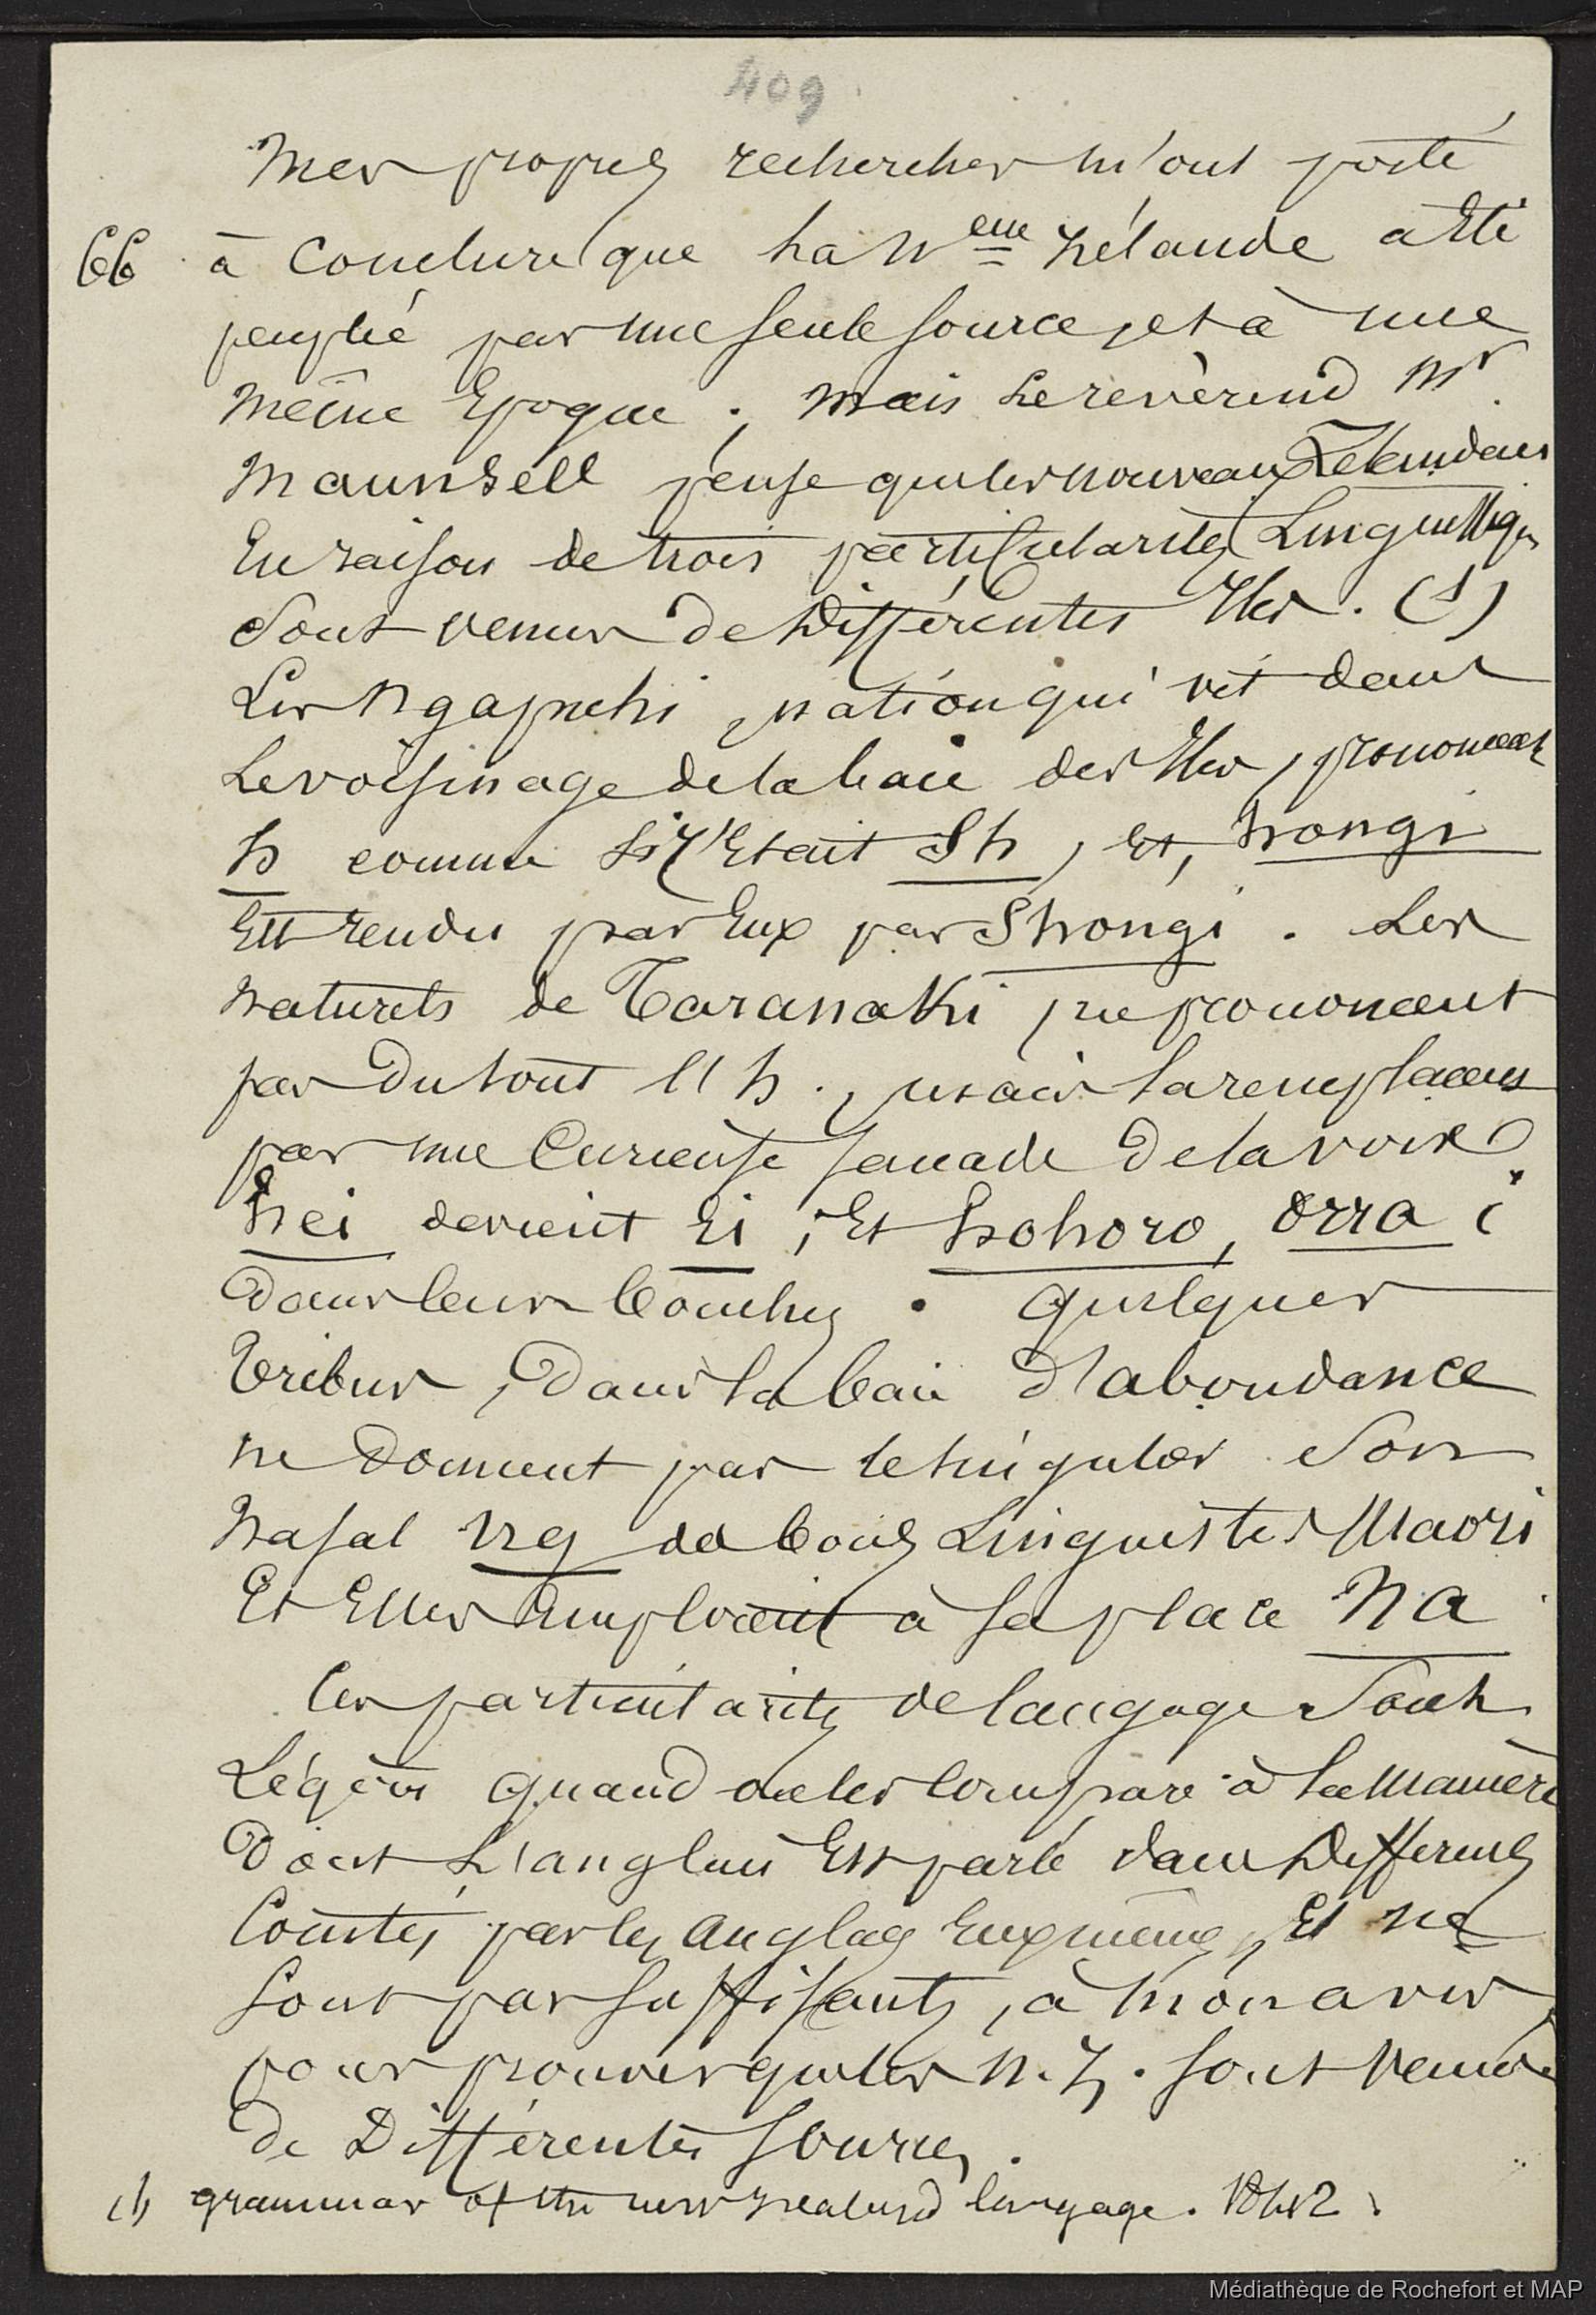 409
Mes propres recherches m'ont porté
66 à conclure que la Nelle Zélande a Eté
peuplé par une seule source, et à une
même Epoque ; mais le révèrend Mr.
Maunsell pense que les nouveaux Zélandais
En raison de trois particularités Linguistiques
Sont venus de Différentes Iles. (1)
Les Ngapuhi, nation qui vit dans
Le voisinage de la baie des Iles, prononcent
h comme s'il Etait Sh, Et, hongi
Est rendu par Eux par Shongi. Les
naturels de Taranaki, ne prononcent
pas Du tout l'h, mais la remplacent
par une Curieuse saccade De la voix
hei devient Ei, Et hohoro, orra
Dans leurs bouches. quelques
tribus, Dans la baie d'abondance
ne Donnent pas le singulier Son
Nasal Ng des bons Linguistes Maori
Et Elles Emploient à sa place Na
Ces particularités de langage Sont
Légères quand on les compare à la manière
Dont L'anglais Est parlé dans Differens
Comtés par les anglais Euxmêmes, Et ne
Sont pas suffisants, à mon avis
pour prouver que les N. Z. sont venus
de Différentes Sources.
(1) grammar of the new zealand language. 1842.
Médiathèque de Rochefort et MAP